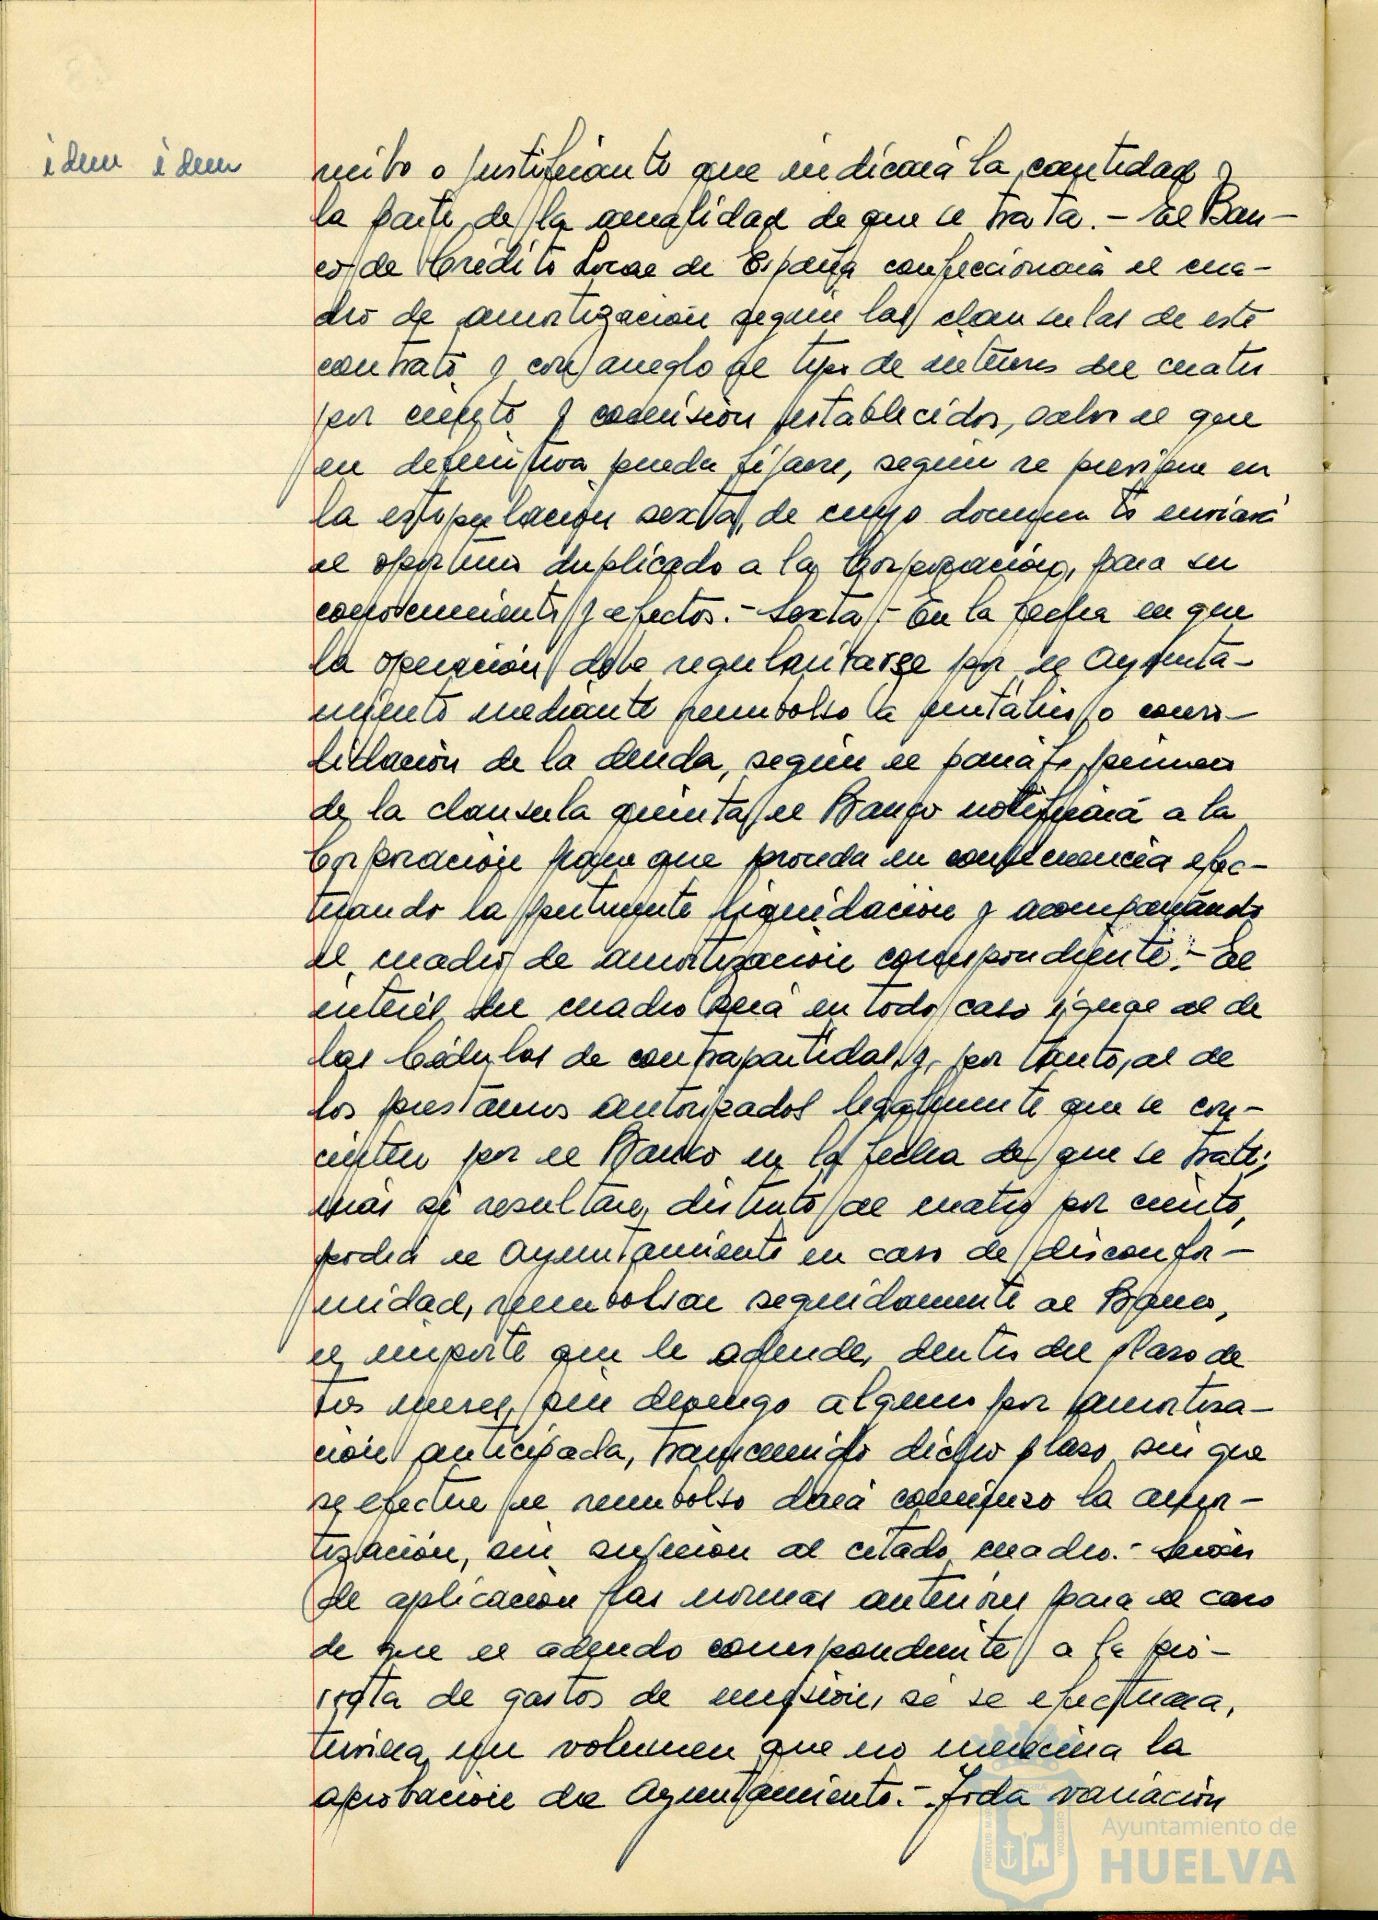 idem idem
recibo o justificante que indicará la cantidad y
la parte de la anualidad de que se trata.- El Ban-
co de Crédito Local de España confeccionará el cua-
dro de amortización según las clausulas de este
contrato y con arreglo al tipo de interés del cuatro
por ciento y comisión establecidos, salvo el que
en definitiva pueda fijarse, según se previene en
la estipulación sexta, de cuyo documento enviará
el oportuno duplicado a la Corporación, para su
conocimiento y efectos.- Sexta.- En la fecha en que
la operación deba regularizarse por el Ayunta-
miento mediante reembolso a metálico o conso-
lidación de la deuda, según el párrafo primero
de la clausula quinta, el Banco notificará a la
Corporación para que proceda en consecuencia efec-
tuando la pertinente liquidación y acompañando
el cuadro de amortización correspondiente.- El
interés del cuadro será en todo caso igual al de
las Cédulas de contrapartidas, y, por tanto, al de
los prestamos autorizados legalmente que se con-
cierten por el Banco en la fecha de que se trate;
mas si resultare distinto al cuatro por ciento,
podrá el Ayuntamiento en caso de disconfor-
midad, reembolsar seguidamente al Banco,
el importe que le adeude, dentro del plazo de
tres meses, sin devengo alguno por amortiza-
ción anticipada, transcurrido dicho plazo sin que
se efectue el reembolso dará comienzo la amor-
tización, sin sujeción al citado cuadro.- Serán
de aplicación las normas anteriores para el caso
de que el adeudo correspondiente a la pro-
rrata de gastos de emisión, si se efectuara,
tuviera un volumen que no mereciera la
aprobación del Ayuntamiento.- Toda variación
Ayuntamiento de
HUELVA